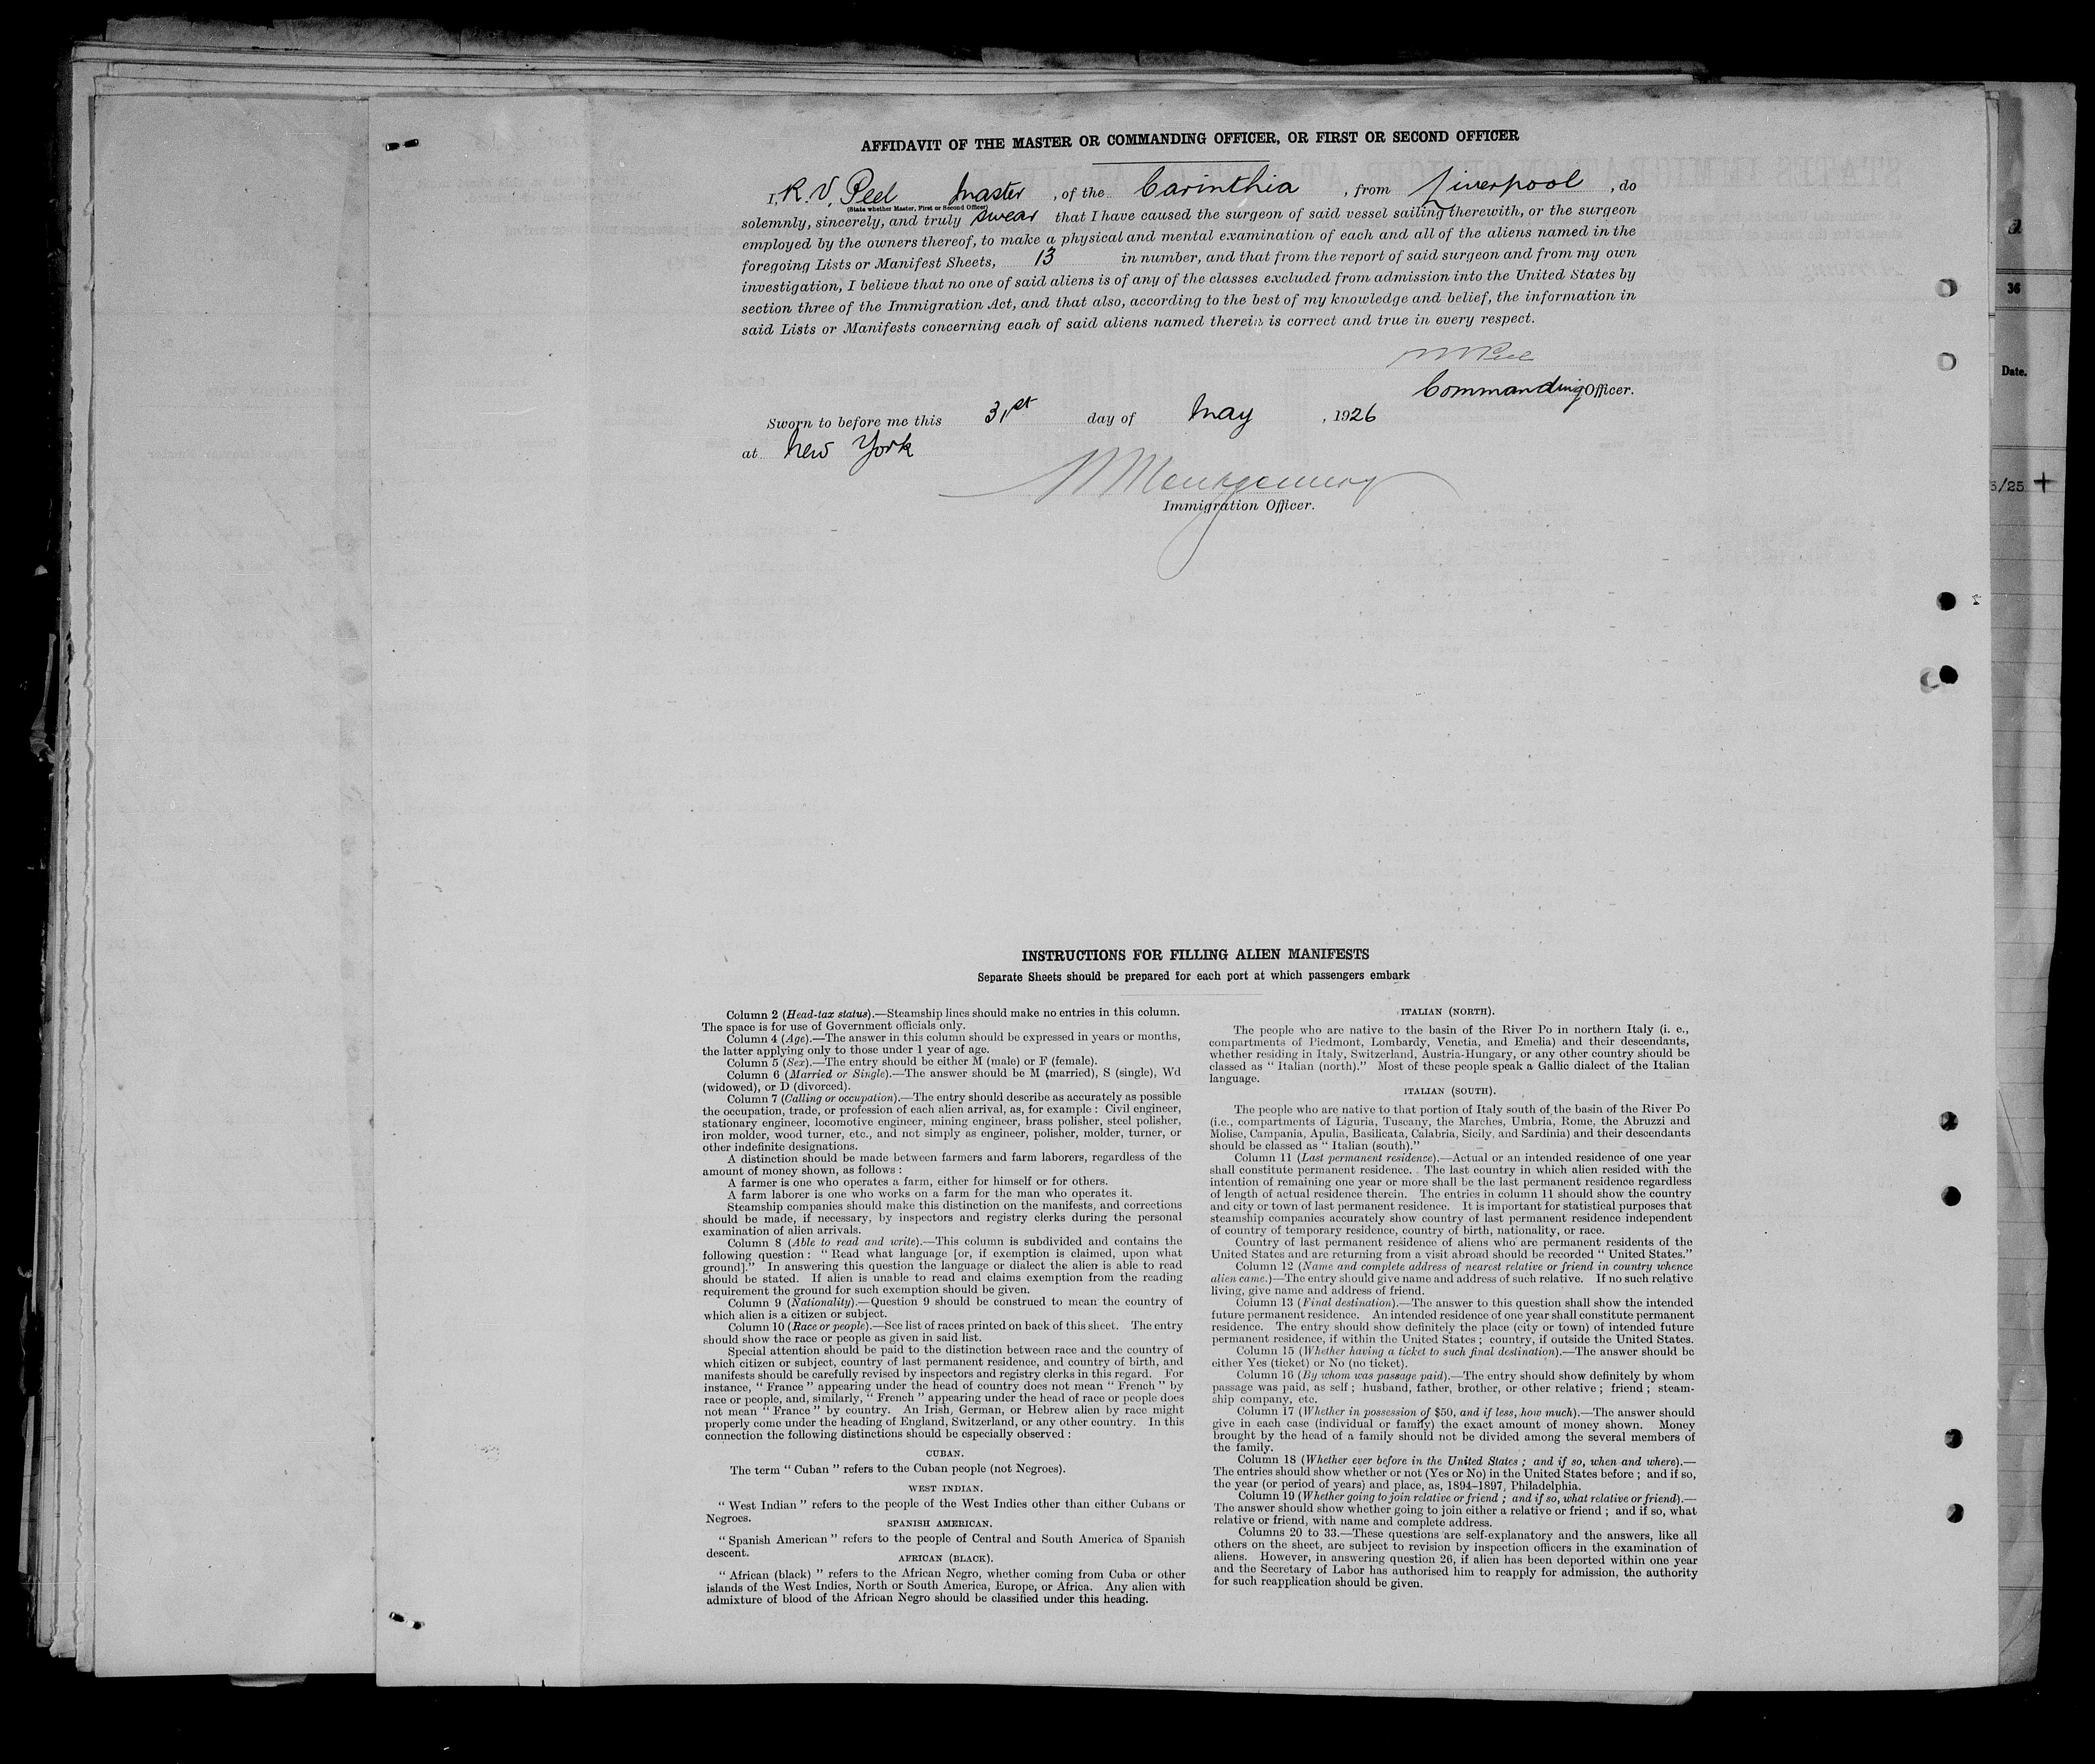 AFFIDAVIT OF THE MASTER OR COMMANDING OFFICER, OR FIRST OR SECOND OFFICER
I, R. V. Peel Master , of the Carinthia , from Liverpool , do
(State whether Master, First or Second Officer)
solemnly, sincerely, and truly swear that I have caused the surgeon of said vessel sailing therewith, or the surgeon
employed by the owners thereof, to make a physical and mental examination of each and all of the aliens named in the
foregoing Lists or Manifest Sheets, 13 in number, and that from the report of said surgeon and from my own
investigation, I believe that no one of said aliens is of any of the classes excluded from admission into the United States by
section three of the Immigration Act, and that also, according to the best of my knowledge and belief, the information in
said Lists or Manifests concerning each of said aliens named therein is correct and true in every respect.
Peel
Commanding Officer.
Sworn to before me this 31st day of May , 1926
at New York
Montgomery
Immigration Officer.
36
Date.
5/25 +
INSTRUCTIONS FOR FILLING ALIEN MANIFESTS
Separate Sheets should be prepared for each port at which passengers embark
Column 2 (Head-tax status).—Steamship lines should make no entries in this column.
The space is for use of Government officials only.
Column 4 (Age).—The answer in this column should be expressed in years or months,
the latter applying only to those under 1 year of age.
Column 5 (Sex).—The entry should be either M (male) or F (female).
Column 6 (Married or Single).—The answer should be M (married), S (single), Wd
(widowed), or D (divorced).
Column 7 (Calling or occupation).—The entry should describe as accurately as possible
the occupation, trade, or profession of each alien arrival, as, for example : Civil engineer,
stationary engineer, locomotive engineer, mining engineer, brass polisher, steel polisher,
iron molder, wood turner, etc., and not simply as engineer, polisher, molder, turner, or
other indefinite designations.
A distinction should be made between farmers and farm laborers, regardless of the
amount of money shown, as follows :
A farmer is one who operates a farm, either for himself or for others.
A farm laborer is one who works on a farm for the man who operates it.
Steamship companies should make this distinction on the manifests, and corrections
should be made, if necessary, by inspectors and registry clerks during the personal
examination of alien arrivals.
Column 8 (Able to read and write).—This column is subdivided and contains the
following question : “ Read what language [or, if exemption is claimed, upon what
ground].” In answering this question the language or dialect the alien is able to read
should be stated. If alien is unable to read and claims exemption from the reading
requirement the ground for such exemption should be given.
Column 9 (Nationality).—Question 9 should be construed to mean the country of
which alien is a citizen or subject.
Column 10 (Race or people).—See list of races printed on back of this sheet. The entry
should show the race or people as given in said list.
Special attention should be paid to the distinction between race and the country of
which citizen or subject, country of last permanent residence, and country of birth, and
manifests should be carefully revised by inspectors and registry clerks in this regard. For
instance, “ France ” appearing under the head of country does not mean “ French ” by
race or people, and, similarly, “ French ” appearing under the head of race or people does
not mean “ France ” by country. An Irish, German, or Hebrew alien by race might
properly come under the heading of England, Switzerland, or any other country. In this
connection the following distinctions should be especially observed :
CUBAN.
The term “ Cuban ” refers to the Cuban people (not Negroes).
WEST INDIAN.
“ West Indian ” refers to the people of the West Indies other than either Cubans or
Negroes.
SPANISH AMERICAN.
“ Spanish American ” refers to the people of Central and South America of Spanish
descent.
AFRICAN (BLACK).
“ African (black) ” refers to the African Negro, whether coming from Cuba or other
islands of the West Indies, North or South America, Europe, or Africa. Any alien with
admixture of blood of the African Negro should be classified under this heading.
ITALIAN (NORTH).
The people who are native to the basin of the River Po in northern Italy (i. e.,
compartments of Piedmont, Lombardy, Venetia, and Emelia) and their descendants,
whether residing in Italy, Switzerland, Austria-Hungary, or any other country should be
classed as “ Italian (north).” Most of these people speak a Gallic dialect of the Italian
language.
ITALIAN (SOUTH).
The people who are native to that portion of Italy south of the basin of the River Po
(i.e., compartments of Liguria, Tuscany, the Marches, Umbria, Rome, the Abruzzi and
Molise, Campania, Apulia, Basilicata, Calabria, Sicily, and Sardinia) and their descendants
should be classed as “ Italian (south).”
Column 11 (Last permanent residence).—Actual or an intended residence of one year
shall constitute permanent residence. The last country in which alien resided with the
intention of remaining one year or more shall be the last permanent residence regardless
of length of actual residence therein. The entries in column 11 should show the country
and city or town of last permanent residence. It is important for statistical purposes that
steamship companies accurately show country of last permanent residence independent
of country of temporary residence, country of birth, nationality, or race.
Country of last permanent residence of aliens who are permanent residents of the
United States and are returning from a visit abroad should be recorded “ United States.”
Column 12 (Name and complete address of nearest relative or friend in country whence
alien came.)—The entry should give name and address of such relative. If no such relative
living, give name and address of friend.
Column 13 (Final destination).—The answer to this question shall show the intended
future permanent residence. An intended residence of one year shall constitute permanent
residence. The entry should show definitely the place (city or town) of intended future
permanent residence, if within the United States ; country, if outside the United States.
Column 15 (Whether having a ticket to such final destination).—The answer should be
either Yes (ticket) or No (no ticket).
Column 16 (By whom was passage paid).—The entry should show definitely by whom
passage was paid, as self ; husband, father, brother, or other relative ; friend ; steam-
ship company, etc.
Column 17 (Whether in possession of $50, and if less, how much).—The answer should
give in each case (individual or family) the exact amount of money shown. Money
brought by the head of a family should not be divided among the several members of
the family.
Column 18 (Whether ever before in the United States ; and if so, when and where).—
The entries should show whether or not (Yes or No) in the United States before ; and if so,
the year (or period of years) and place, as, 1894–1897, Philadelphia.
Column 19 (Whether going to join relative or friend ; and if so, what relative or friend).—
The answer should show whether going to join either a relative or friend ; and if so, what
relative or friend, with name and complete address.
Columns 20 to 33.—These questions are self-explanatory and the answers, like all
others on the sheet, are subject to revision by inspection officers in the examination of
aliens. However, in answering question 26, if alien has been deported within one year
and the Secretary of Labor has authorised him to reapply for admission, the authority
for such reapplication should be given.